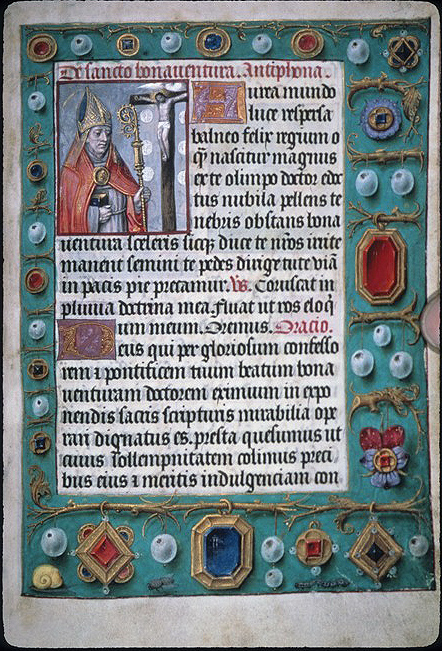 De sancto bonaventura. Antiphona.
Aurea mundo
luce respersa
balneo felix regium o
q̄ nascitur magnus
ecce olimpo doctor edoc
tus nubila pellens te
nebris obstans bona
uentura sceleris sicq; duce te nr̄os irrite
manent semini te pedes dirige tute viā
in pacis pie precamur. Vs. Coruscat in
pluuia doctrina mea. fluat ut ros eloq̄
uium meum. Oremus. Oracio.
Deus qui per gloriosum confesso
rem ⁊ pontificem tuum beatum bona
uenturam doctorem eximium in expo
nendis sacris scripturis mirabilia ope
rari dignatus es. presta quesumus ut
cuius sollempnitatem colimus preci
bus eius ⁊ meritis indulgenciam con